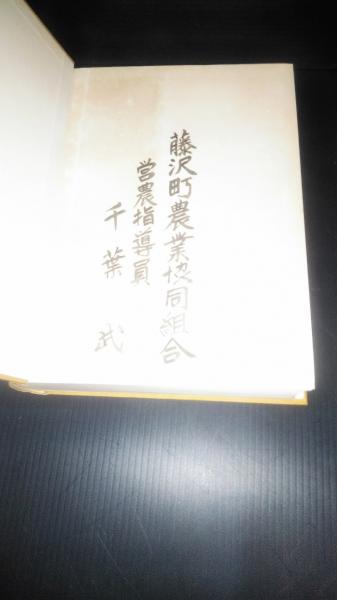 藤沢町農業協同組合
営農指導員
千葉武